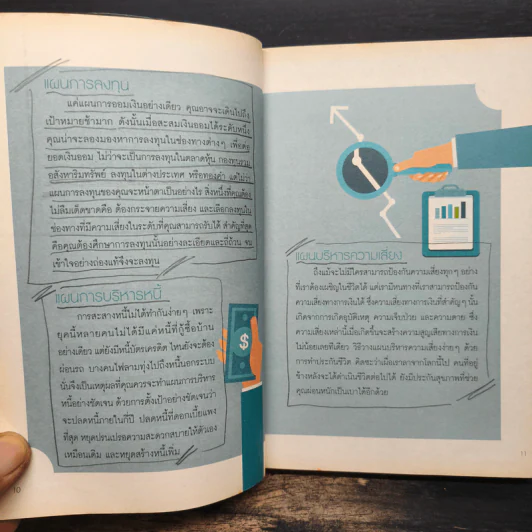 แผนการลงทุน
แค่แผนการออมเงินอย่างเดียว คุณอาจจะเดินไปถึง
เป้าหมายช้ามาก ดังนั้นเมื่อสะสมเงินออมได้ระดับหนึ่ง
คุณน่าจะลองมองหาการลงทุนในช่องทางต่างๆ เพื่อต่อ
ยอดเงินออม ไม่ว่าจะเป็นการลงทุนในตลาดหุ้น กองทุนรวม
อสังหาริมทรัพย์ ลงทุนในต่างประเทศ หรือทองคำ แต่ไม่ว่า
แผนการลงทุนของคุณจะหน้าตาเป็นอย่างไร สิ่งหนึ่งที่คุณต้อง
ไม่ลืมเด็ดขาดคือ ต้องกระจายความเสี่ยง และเลือกลงทุนใน
ช่องทางที่มีความเสี่ยงในระดับที่คุณสามารถรับได้ สำคัญที่สุด
คือคุณต้องศึกษาการลงทุนนั้นอย่างละเอียดและถี่ถ้วน จน
เข้าใจอย่างถ่องแท้จึงจะลงทุน
แผนการบริหารหนี้
การสะสางหนี้ไม่ได้ทำกันง่ายๆ เพราะ
ยุคนี้หลายคนไม่ได้มีแค่หนี้ที่กู้ซื้อบ้าน
อย่างเดียว แต่ยังมีหนี้บัตรเครดิต ไหนยังจะต้อง
ผ่อนรถ บางคนไฟลามทุ่งไปถึงหนี้นอกระบบ
นั่นจึงเป็นเหตุผลที่คุณควรจะทำแผนการบริหาร
หนี้อย่างชัดเจน ด้วยการตั้งเป้าอย่างชัดเจนว่า
จะปลดหนี้ภายในกี่ปี ปลดหนี้ที่ดอกเบี้ยแพง
ที่สุด หยุดปรนเปรอความสะดวกสบายให้ตัวเอง
เหมือนเดิม และหยุดสร้างหนี้เพิ่ม
$
10
แผนบริหารความเสี่ยง
ถึงแม้จะไม่มีใครสามารถป้องกันความเสี่ยงทุกๆ อย่าง
ที่เราต้องเผชิญในชีวิตได้ แต่เรามีหนทางที่เราสามารถป้องกัน
ความเสี่ยงทางการเงินได้ ซึ่งความเสี่ยงทางการเงินที่สำคัญๆ นั้น
เกิดจากการเกิดอุบัติเหตุ ความเจ็บป่วย และความตาย ซึ่ง
ความเสี่ยงเหล่านี้เมื่อเกิดขึ้นจะสร้างความสูญเสียทางการเงิน
ไม่น้อยเลยทีเดียว วิธีวางแผนบริหารความเสี่ยงง่ายๆ ด้วย
การทำประกันชีวิต คิดซะว่าเมื่อเราลาจากโลกนี้ไป คนที่อยู่
ข้างหลังจะได้ดำเนินชีวิตต่อไปได้ ยังมีประกันสุขภาพที่ช่วย
คุณผ่อนหนักเป็นเบาได้อีกด้วย
11